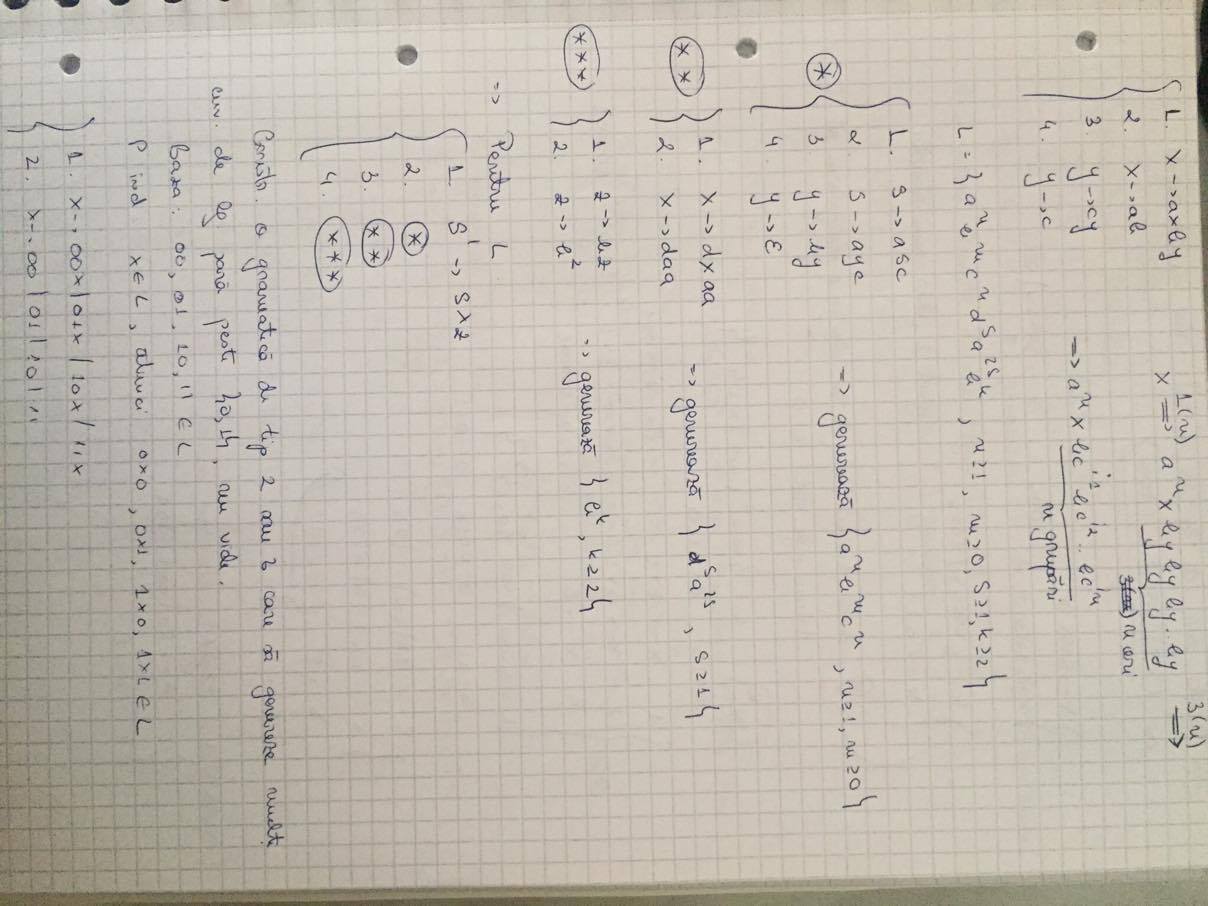 1. x → axby
2. x → ab
3. y → cy
4. y → c
x 1(n) ⟹ aⁿ x by by by..by 3(n) ⟹
n ori
→ aⁿ x bc^i1 bc^i2 .. bc^in
n grupări
L = { aⁿ b^m cⁿ d^s a^2s b^k , n≥1, m≥0, s≥1, k≥2 }
* 1. S → aSc
2. S → ayc
3. y → by
4. y → ε
=> generează { aⁿ b^m cⁿ , n≥1, m≥0 }
** 1. x → dxaa
2. x → daa
=> generează { d^s a^2s , s≥1 }
*** 1. z → bz
2. z → b²
=> generează { b^k , k≥2 }
=> Pentru L
1. S' → Sxz
2. *
3. **
4. ***
Constr. o gramatică de tip 2 sau 3 care să genereze mulț.
cuv. de lg pară peste {0,1}, nevide.
Baza: 00, 01, 10, 11 ∈ L
P ind x ∈ L, atunci 0x0, 0x1, 1x0, 1x1 ∈ L
1. x → 00x | 01x | 10x | 11x
2. x → 00 | 01 | 10 | 11